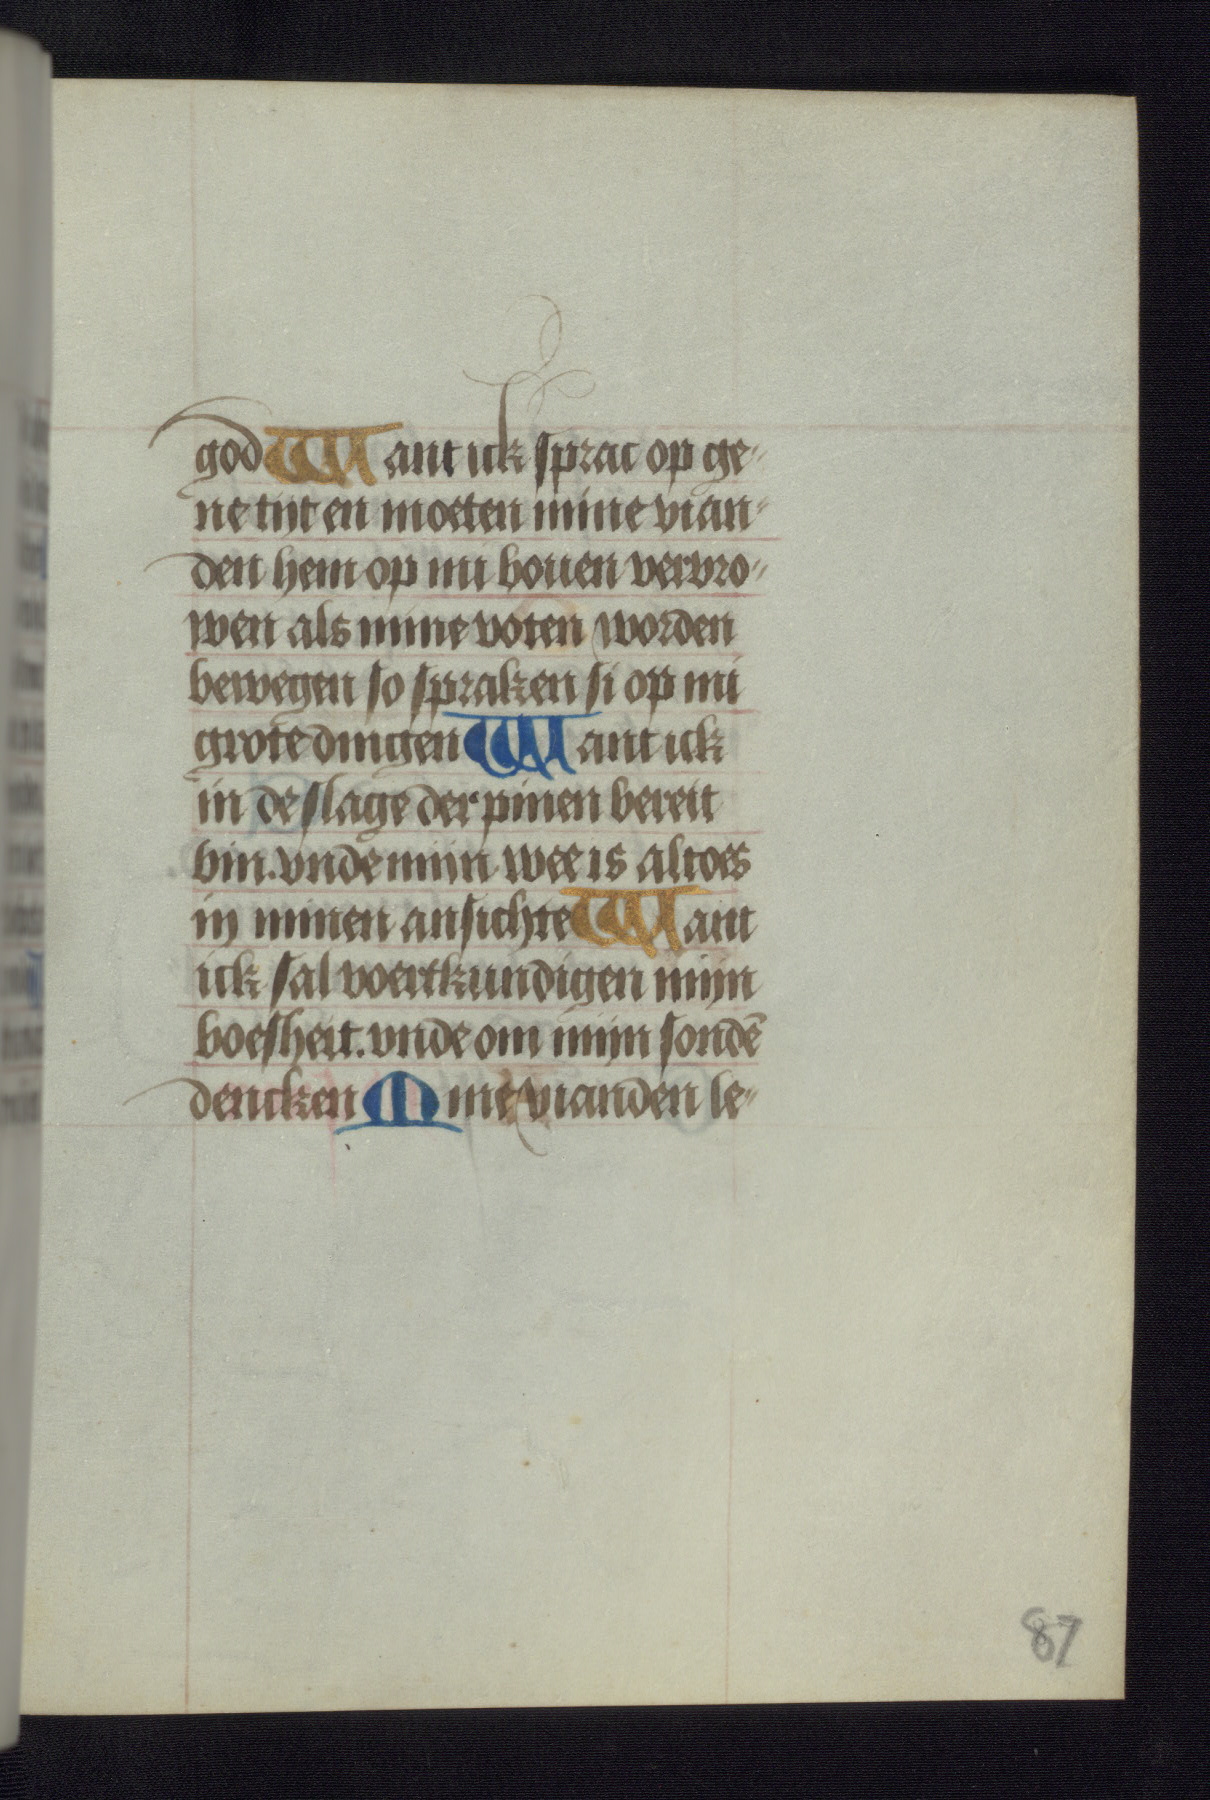 god Want ick sprac op ge-
ne tijt en moeten mine vian-
den hem op mi bouen vervro-
wen als mine voten worden
bewegen so spraken si op mi
grote dingen Want ick
in de slage der pinen bereit
bin. vnde mijn wee is altoes
in minen ansichte Want
ick sal voertkundigen mijn
boesheit. vnde om mijn sondē
dencken Mine vianden le-
87